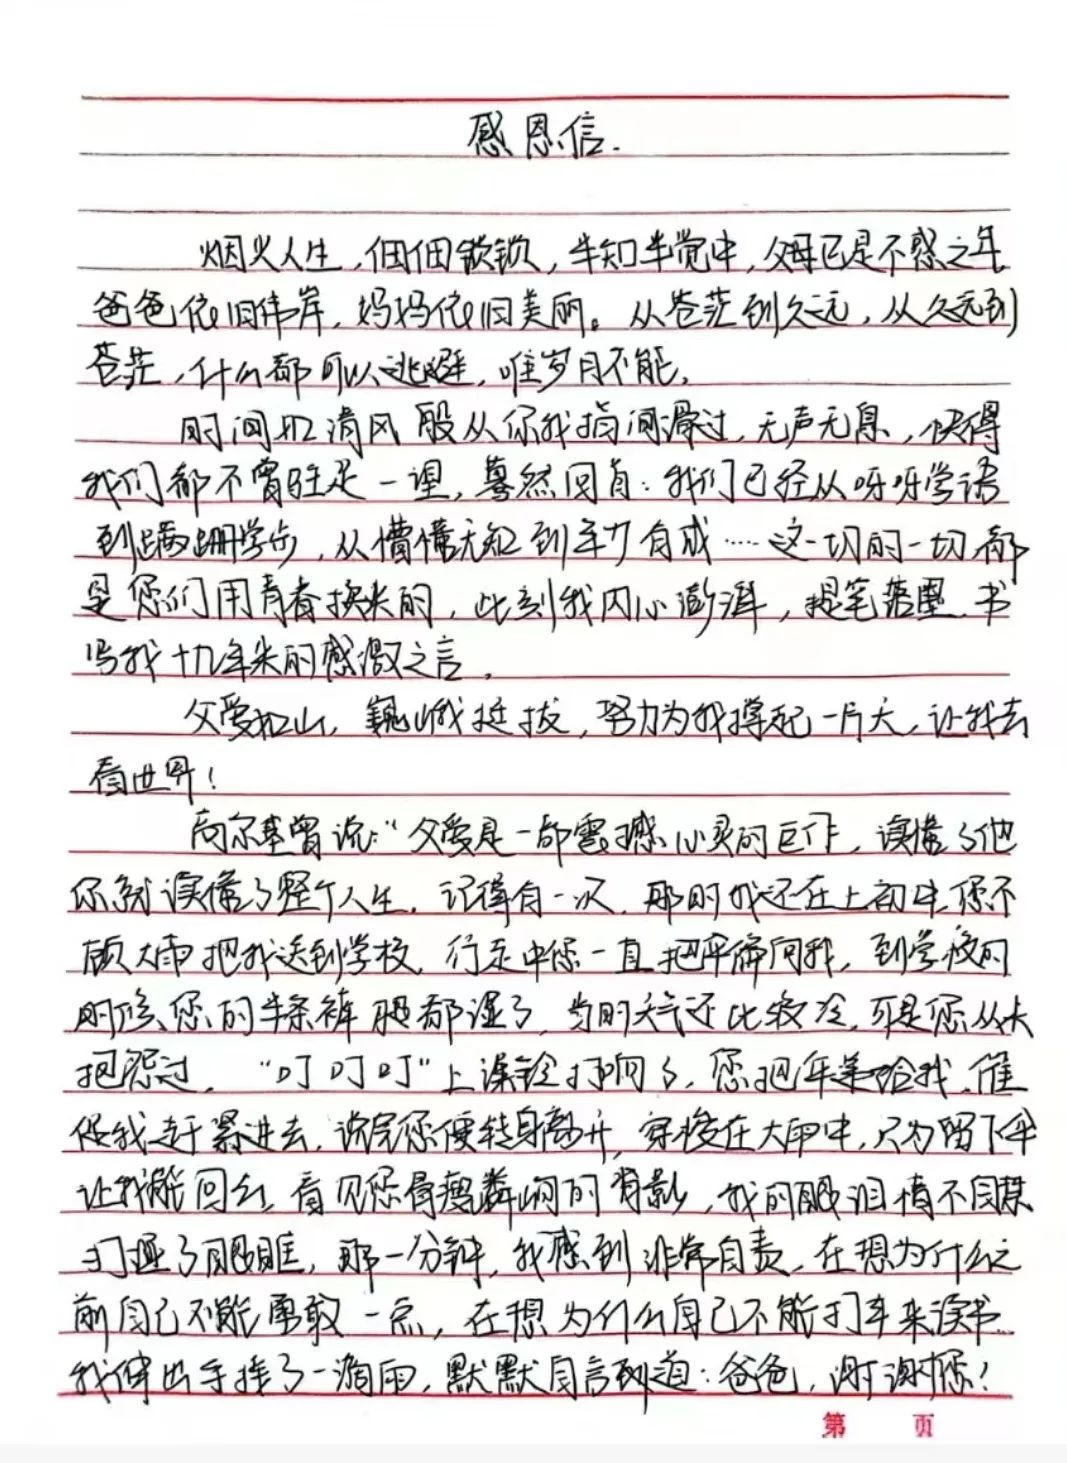 感恩信.
烟火人生,佃佃锁锁,半知半觉中,父母已是不惑之年
爸爸依旧伟岸,妈妈依旧美丽。从苍茫到久远,从久远到
苍茫,什么都可以逃避,唯岁月不能,
时间如清风般从你我指间滑过,无声无息,快得
我们都不曾驻足一望,蓦然回首:我们已经从呀呀学语
到蹒跚学步,从懵懂无知到年方自成……这一切的一切都
是您们用青春换来的,此刻我内心澎湃,提笔落墨、书
写我十九年来的感激之言。
父爱如山,巍峨挺拔,努力为我撑起一片天,让我去
看世界!
高尔基曾说:“父爱是一部震撼心灵的巨作,读懂了他
你就读懂了整个人生。记得有一次,那时我还在上初中,您不
顾大雨把我送到学校,行走中您一直把伞偏向我,到学校的
时候、您的半条裤腿都湿了,当时天气还比较冷,可是您从未
抱怨过,“叮叮叮”上课铃打响了,您把伞递给我、催
促我赶紧进去,说完您便转身离开,穿梭在大雨中,只为留下伞
让我能回去,看见您骨瘦嶙峋的背影,我的眼泪情不自禁
打湿了眼眶,那一分钟,我感到非常自责,在想为什么之
前自己不能勇敢一点,在想为什么自己不能打车来读书…
我伸出手接了一滴雨,默默自言到道:爸爸,谢谢您!
第 页